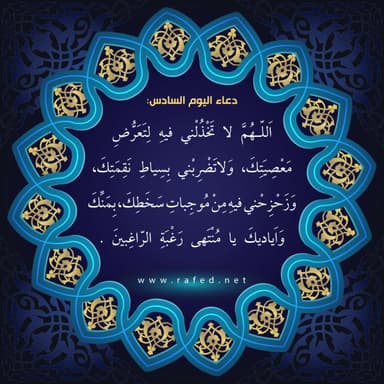 دعاء اليوم السادس:
اَللّـهُمَّ لا تَخْذُلْني فيهِ لِتَعَرُّضِ
مَعْصِيَتِكَ، وَلاتَضْرِبْني بِسِياطِ نَقِمَتِكَ،
وَزَحْزِحْني فيهِ مِنْ مُوجِباتِ سَخَطِكَ، بِمَنِّكَ
وَاَياديكَ يا مُنْتَهى رَغْبَةِ الرّاغِبينَ .
www.rafed.net